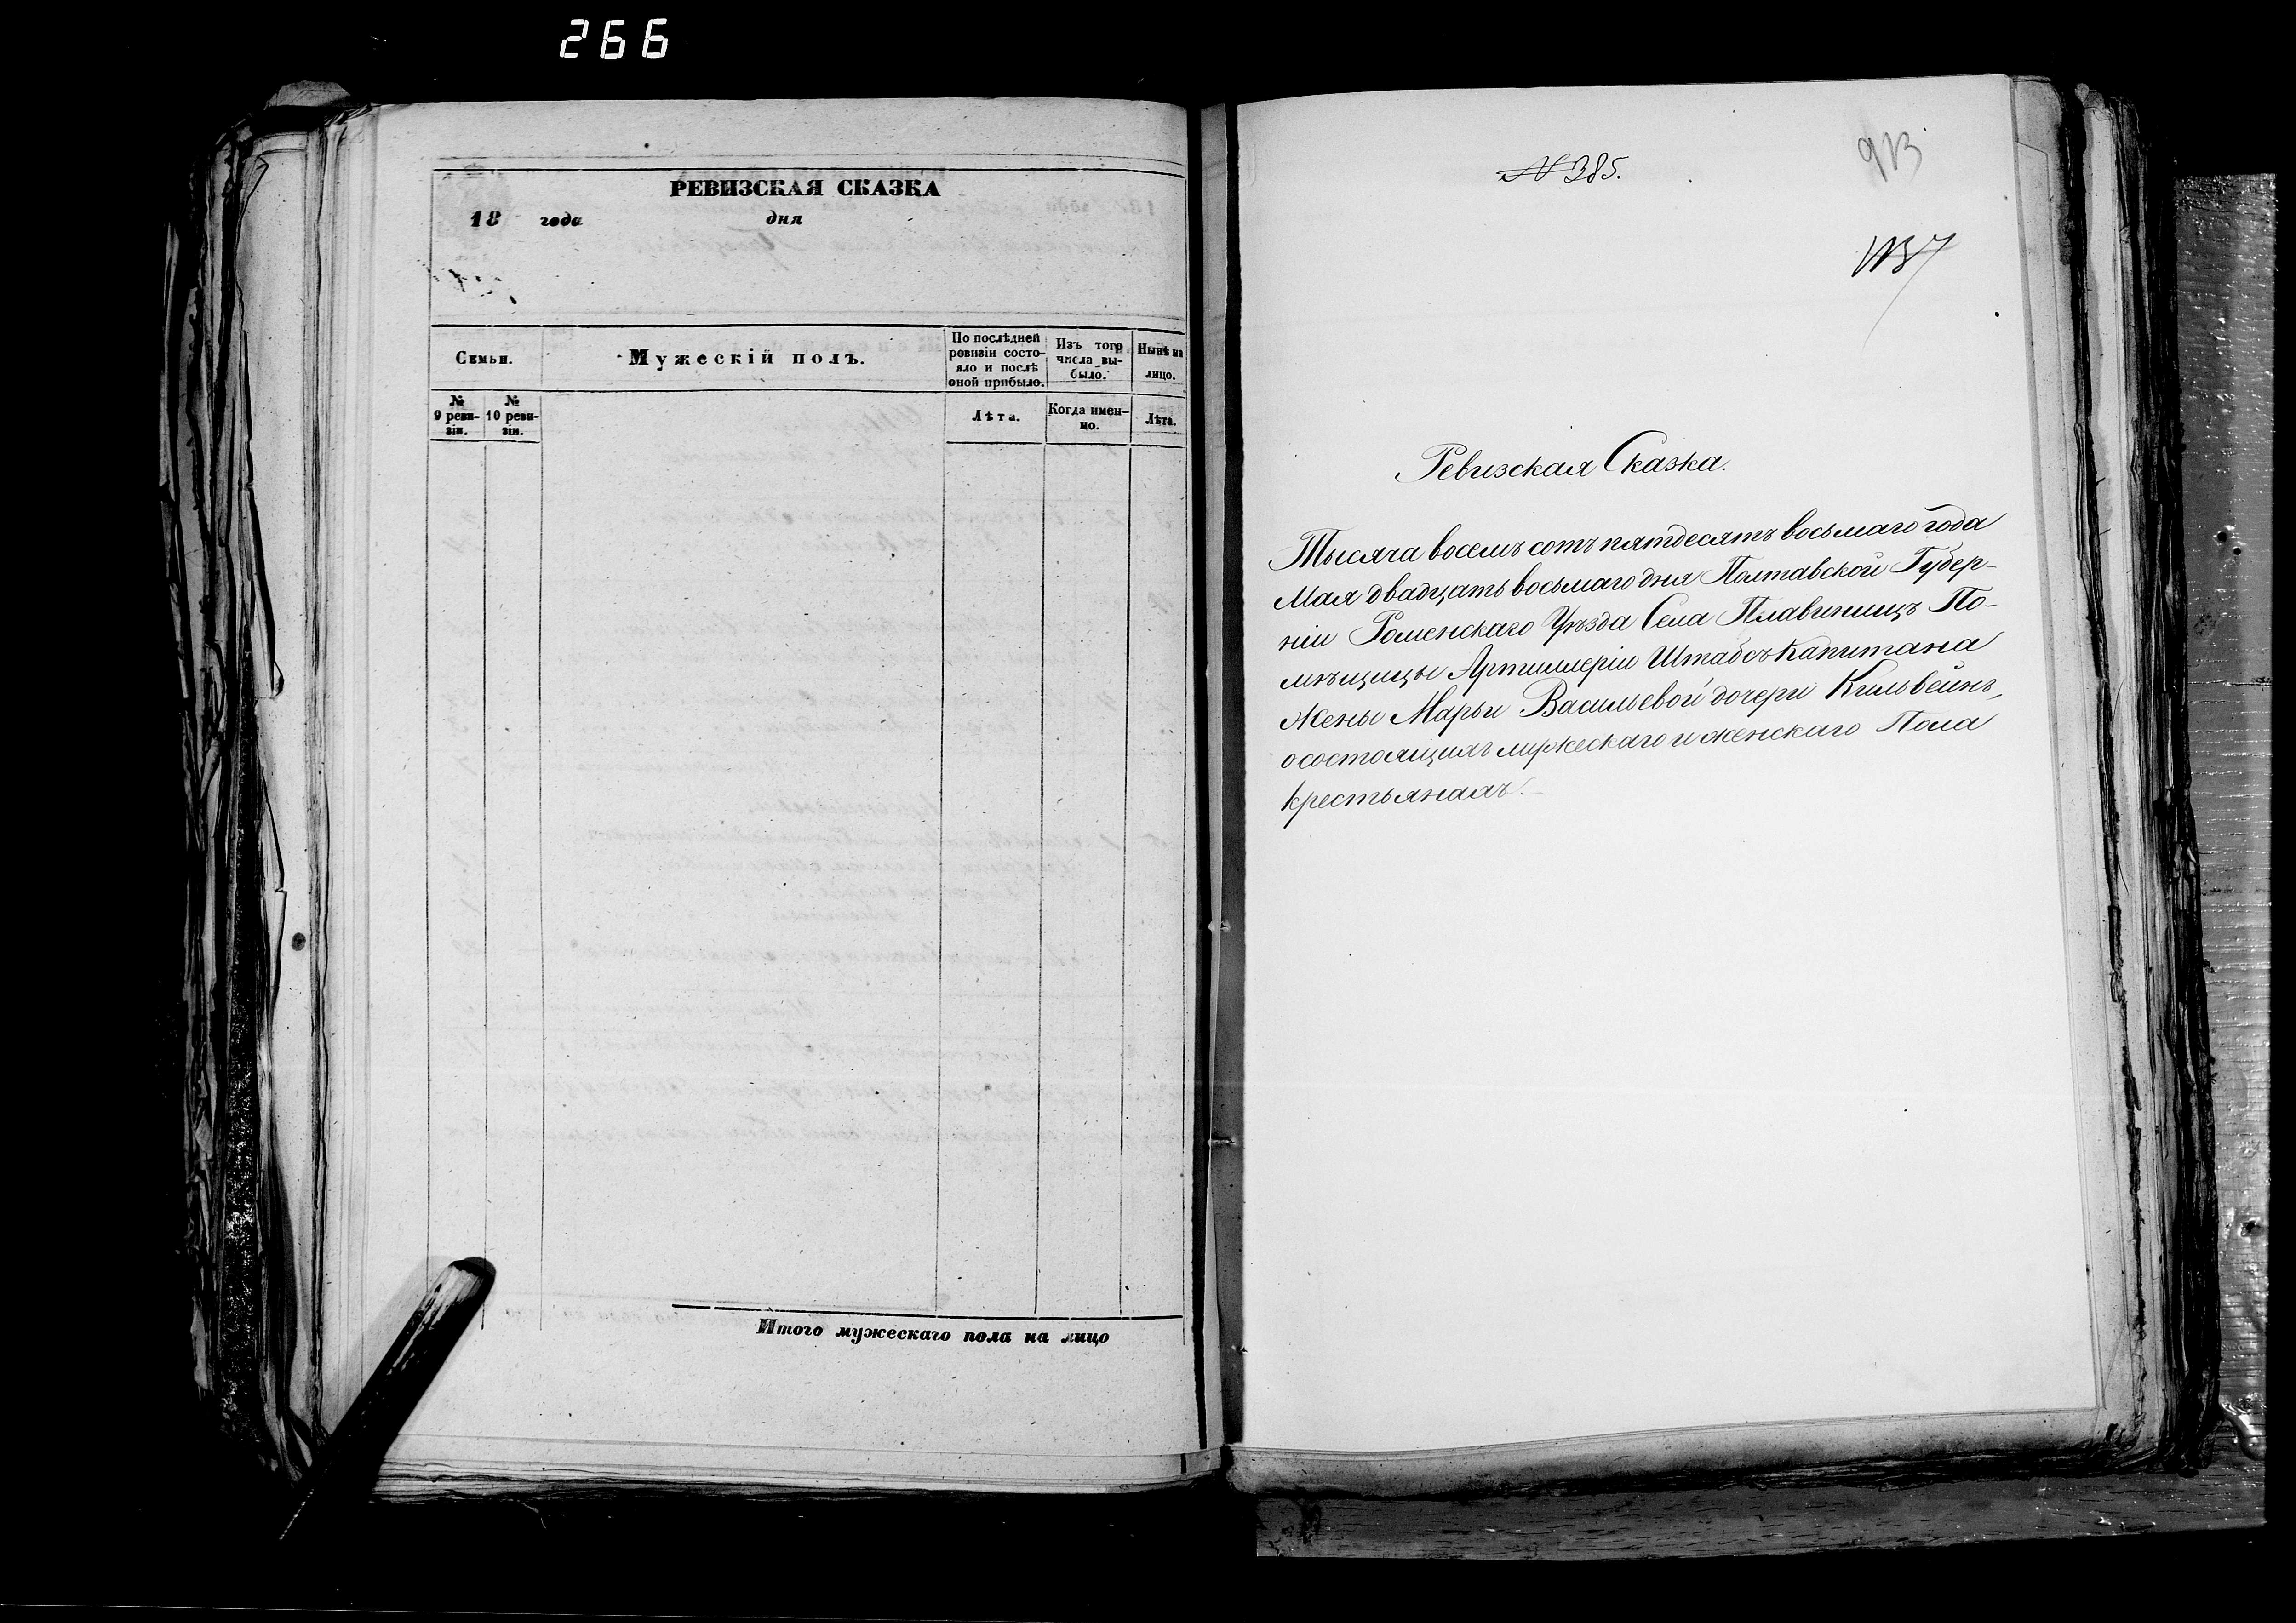 266
РЕВИЗСКАЯ СКАЗКА
18 года дня
Семьи.
Мужескій полъ.
По послѣдней
ревизіи состо-
яло и послѣ
оной прибыло.
Изъ того
числа вы-
было.
Нынѣ на
лицо.
№
9 реви-
зіи.
№
10 реви-
зіи.
Лѣта.
Когда имен-
но.
Лѣта.
Итого мужескаго пола на лицо
№ 385.
Ревизская Сказка.
Тысяча восемь сотъ пятдесятъ восьмаго года
Мая двадцать восьмаго дня Полтавской Губер-
ніи Роменскаго Уѣзда Села Плавинищъ По-
мѣщицы Артиллеріи Штабсъ Капитана
жены Марьи Васильевой дочери Кильвейнъ,
о состоящихъ мужескаго и женскаго Пола
крестьянахъ.